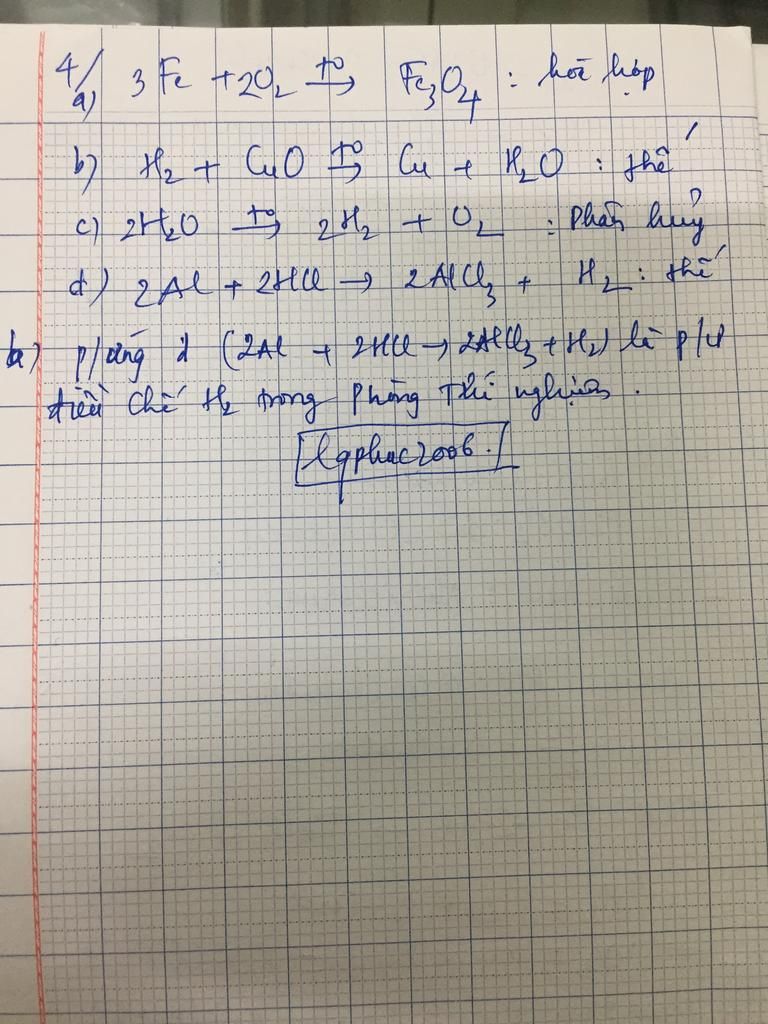 4/
a) 3Fe + 2O₂ →(t°) Fe₃O₄ : hóa hợp
b) H₂ + CuO →(t°) Cu + H₂O : thế
c) 2H₂O →(t°) 2H₂ + O₂ : Phân huỷ
d) 2Al + 2HCl → 2AlCl₃ + H₂ : thế
b) p/ứng d (2Al + 2HCl → 2AlCl₃ + H₂) là p/ứ
điều chế H₂ trong phòng thí nghiệm.
lqphuc2006.